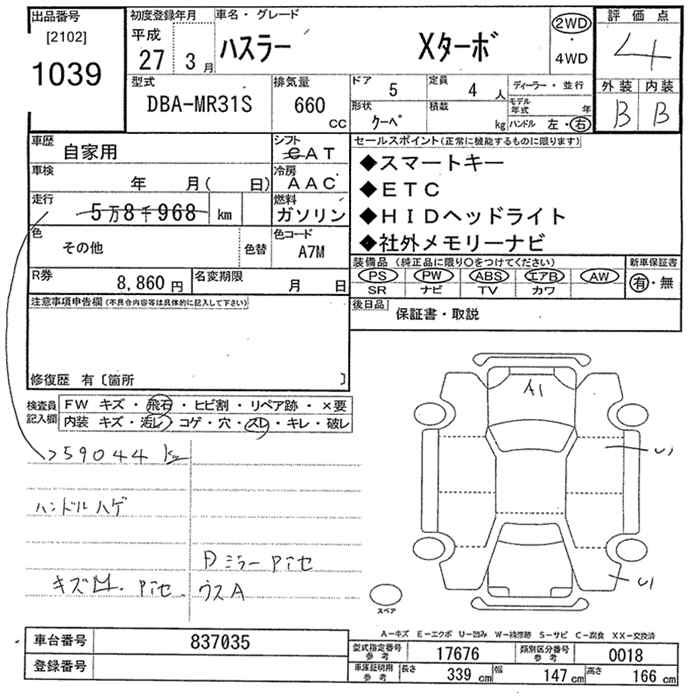 出品番号
[2102]
1039
初度登録年月
平成
27 3月
車名・グレード
ハスラー Xターボ
2WD
・
4WD
評価点
4
外装 内装
B B
型式
DBA-MR31S
排気量
660
CC
ドア 5 定員 4人
形状 クーペ 積載 kg
ディーラー・並行
モデル年式 年
ハンドル 左・右
車歴
自家用
シフト
CAT
車検
年 月( 日)
冷房
AAC
走行
5万8千968 km
燃料
ガソリン
色
その他
色替
色コード
A7M
R券
8,860円
名変期限
月 日
セールスポイント(正常に機能するものに限ります)
◆スマートキー
◆ETC
◆HIDヘッドライト
◆社外メモリーナビ
装備品(純正品に限り○をつけてください)
PS PW ABS エアB AW
SR ナビ TV カワ
新車保証書
有・無
後日品
保証書・取説
注意事項申告欄(不具合内容等は具体的に記入して下さい)
修復歴 有〔箇所 〕
検査員
記入欄
FW キズ・飛石・ヒビ割・リペア跡・×要
内装 キズ・汚レ・コゲ・穴・スレ・キレ・破レ
59044 km
ハンドルハゲ
ミラー
キズ
ウスA
A1
U1
U1
スペア
A-キズ E-エクボ U-凹み W-補修跡 S-サビ C-腐食 XX-交換済
車台番号 837035
登録番号
型式指定番号
参考
17676
類別区分番号
参考
0018
車庫証明用
参考
長さ 339 cm 幅 147 cm 高さ 166 cm